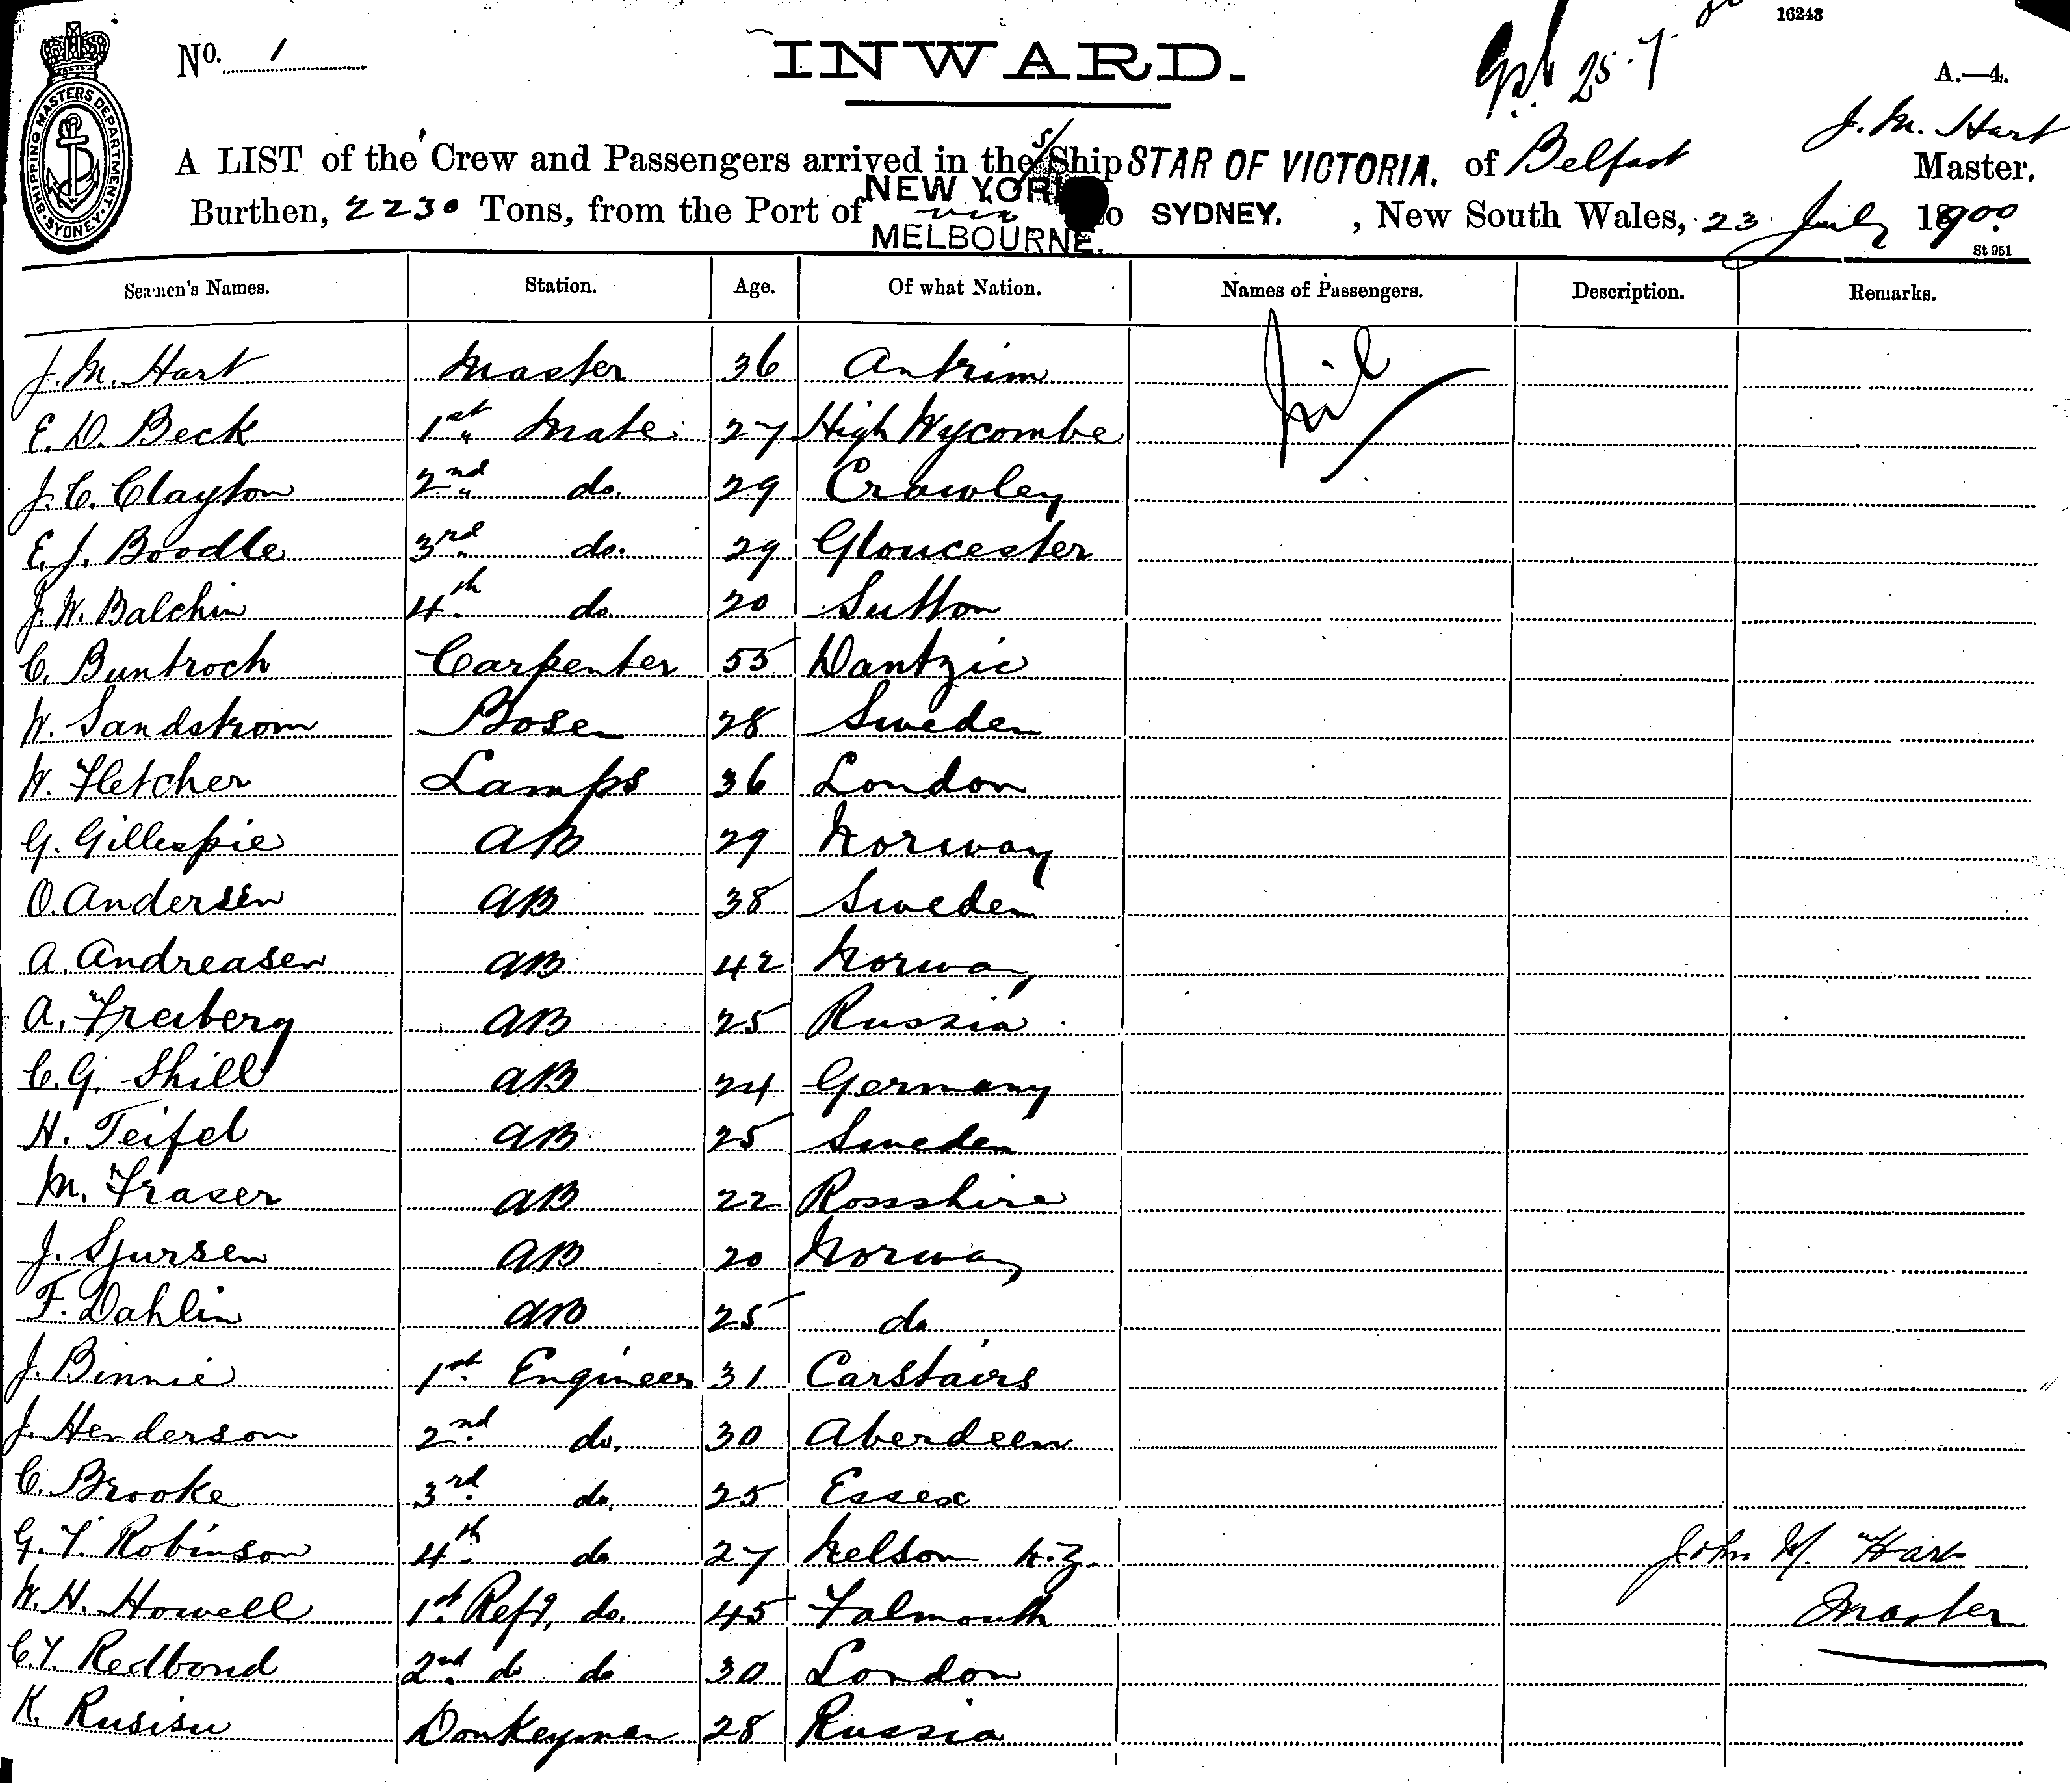 16243
No. 1
INWARD.
25.7
A.—4.
SHIPPING MASTERS DEPARTMENT. SYDNEY.
J. M. Hart
A LIST of the Crew and Passengers arrived in the S/Ship STAR OF VICTORIA. of Belfast Master.
Burthen, 2230 Tons, from the Port of NEW YORK via MELBOURNE. to SYDNEY. , New South Wales, 23 July 1900.
St 951
Seamen's Names. Station. Age. Of what Nation. Names of Passengers. Description. Remarks.
J. M. Hart Master 36 Antrim Nil
E. D. Beck 1st Mate 27 High Wycombe
J. C. Clayton 2nd do. 29 Crawley
E. J. Boodle 3rd do. 29 Gloucester
J. W. Balchin 4th do 20 Sutton
C. Buntroch Carpenter 55 Dantzic
W. Sandstrom Bosen 28 Sweden
W. Fletcher Lamps 36 London
G. Gillespie AB 29 Norway
O. Andersen AB 38 Sweden
A. Andreasen AB 42 Norway
A. Freiberg AB 25 Russia
C. G. Skill AB 24 Germany
H. Teifel AB 25 Sweden
M. Fraser AB 22 Rossshire
J. Sjursen AB 20 Norway
F. Dahlin AB 25 do
J. Binnie 1st Engineer 31 Carstairs
J. Henderson 2nd do. 30 Aberdeen
C. Brooke 3rd do. 25 Essex
G. T. Robinson 4th do 27 Nelson N.Z. John M. Hart
W. H. Howell 1st Refg. do. 45 Falmouth Master
C. T. Redbond 2nd do do 30 London
K. Rusisu Donkeyman 28 Russia